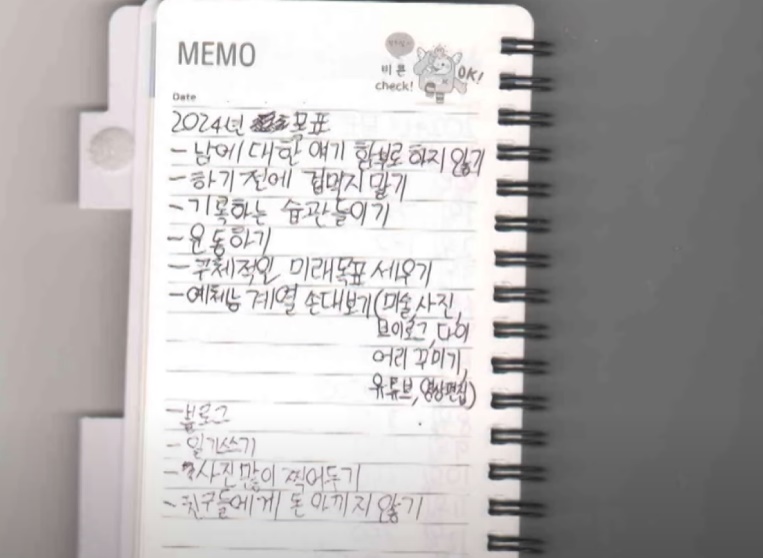 MEMO
비콘
check!
OK!
Date
2024년 목표
- 남에 대한 얘기 함부로 하지 않기
- 하기 전에 겁먹지 말기
- 기록하는 습관들이기
- 운동하기
- 구체적인 미래목표 세우기
- 예체능 계열 손대보기(미술,사진,
브이로그,다이
어리 꾸미기,
유튜브,영상편집)
- 블로그
- 일기쓰기
- 사진 많이 찍어두기
- 친구들에게 돈 아끼지 않기